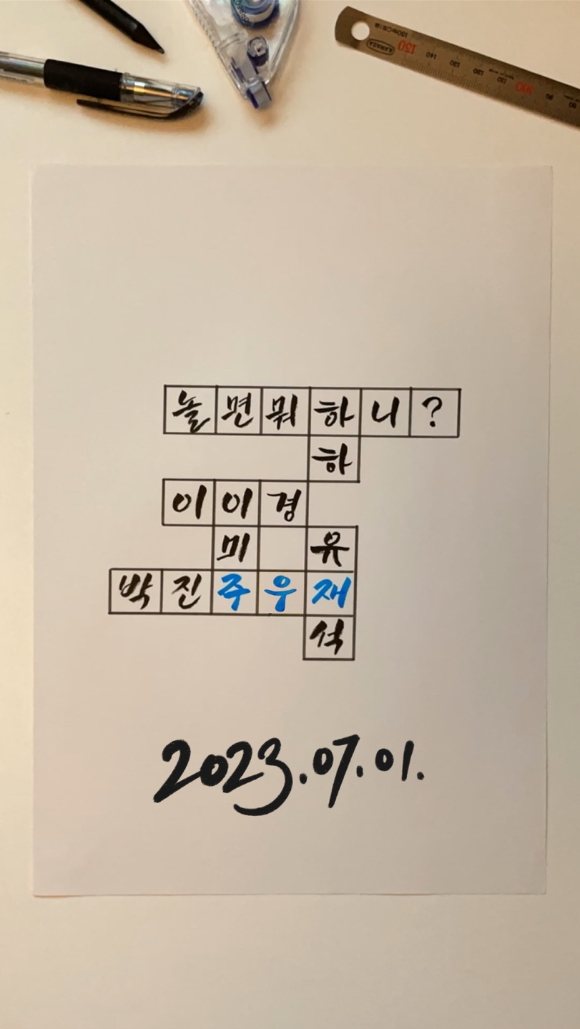 놀면뭐하니?
하
이이경
미 유
박진주우재
석
2023.07.01.
150